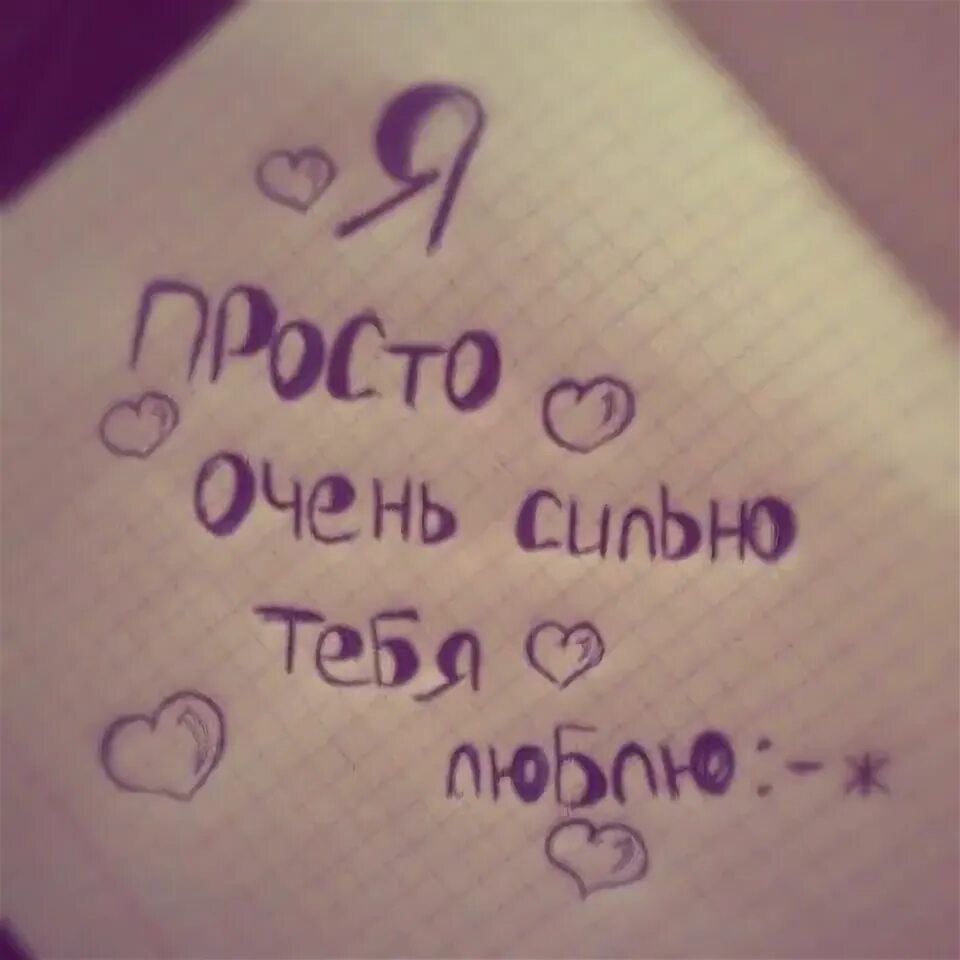 Я
просто
очень сильно
тебя
люблю:-*